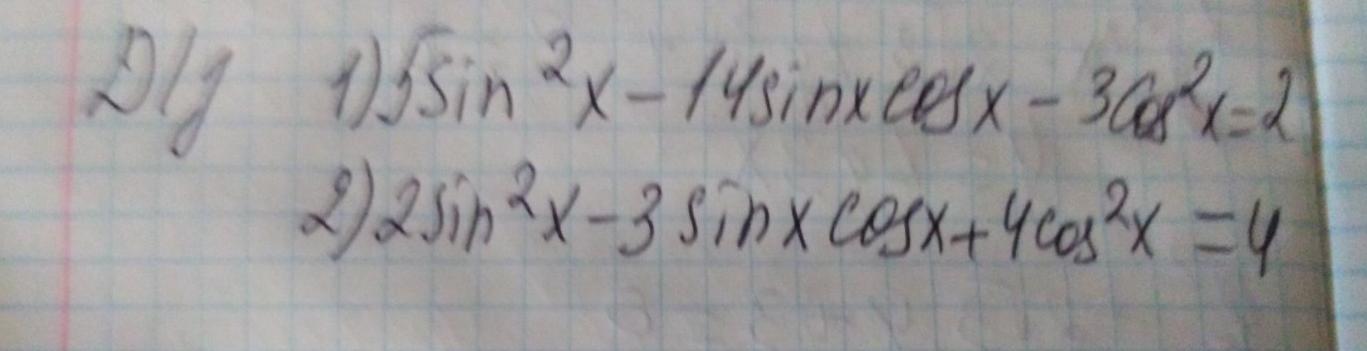 Д/з 1) 5sin²x - 14sinxcosx - 3cos²x = 2
2) 2sin²x - 3sinxcosx + 4cos²x = 4